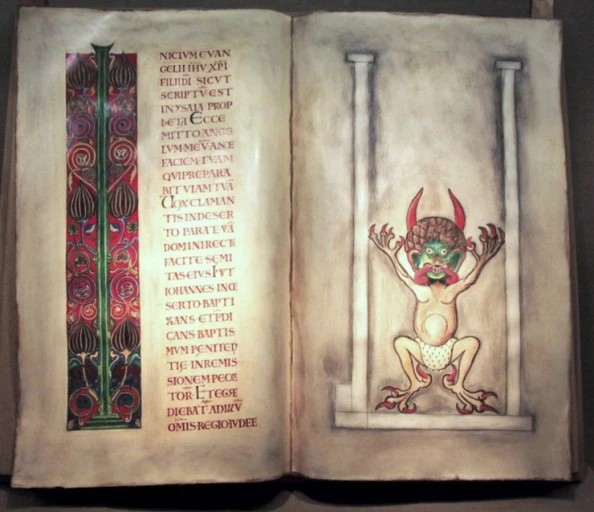 NICIVM EVAN
GELII IHV XPI
FILII DI SICVT
SCRIPTV EST
IN YSAIA PROP
hETA ECCE
MITTO ANGE
LVM MEV ANTE
FACIEM TVAM
QVI PREPARA
BIT VIAM TVA
VOX CLAMAN
TIS IN DESER
TO PARATE VIA
DOMINI RECTA
FACITE SEMI
TAS EIVS FVIT
IOHANNES IN DE
SERTO BAPTI
ZANS ET PDI
CANS BAPTIS
MVM PENITEN
TIE IN REMIS
SIONEM PECCA
TOR ET EGRE
DIEBAT AD ILLV
OMIS REGIO IVDEE